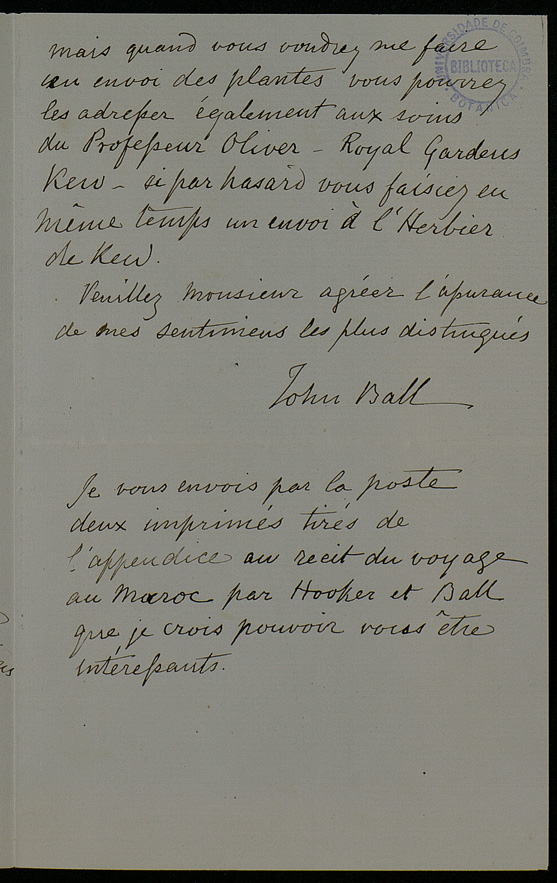 mais quand vous voudrez me faire
un envoi des plantes vous pouvrez
les adresser également aux soins
du Professeur Oliver – Royal Gardens
Kew – si par hasard vous faisiez en
même temps un envoi à l'Herbier
de Kew.
Veuillez Monsieur agréer l'assurance
de mes sentimens les plus distingués
John Ball
Je vous envois par la poste
deux imprimés tirés de
l'appendice au recit du voyage
au Maroc par Hooker et Ball
que je crois pouvoir vous être
intéressants.
UNIVERSIDADE DE COIMBRA
BIBLIOTECA
BOTANICA